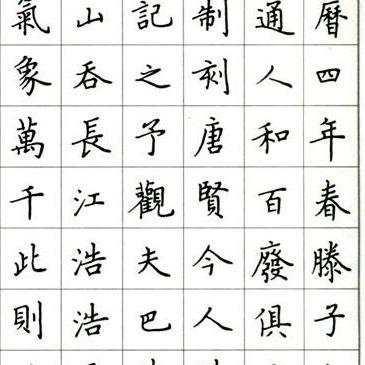 曆四年春滕子
通人和百廢俱
制刻唐賢今人
記之予觀夫巴
山吞長江浩浩
氣象萬千此則